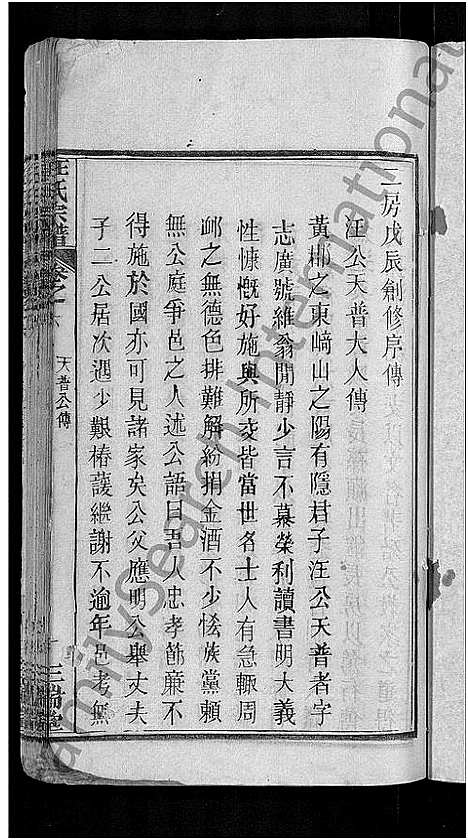 二房戊辰創修序傳
汪公天普大人傳
黃郴之東﨑山之陽有隱君子汪公天普者字
志廣號維翁閒靜少言不慕榮利讀書明大義
性慷慨好施與所交皆當世名士人有急輒周
䘏之無德色排難解紛捐金酒不少恡族黨賴
無公庭爭邑之人述公語曰吾人忠孝節廉不
得施於國亦可見諸家矣公父應明公舉丈夫
子二公居次遇少艱椿護繼謝不逾年邑考無
汪氏宗譜
卷之一
天普公傳
三瑞堂
FamilySearch International